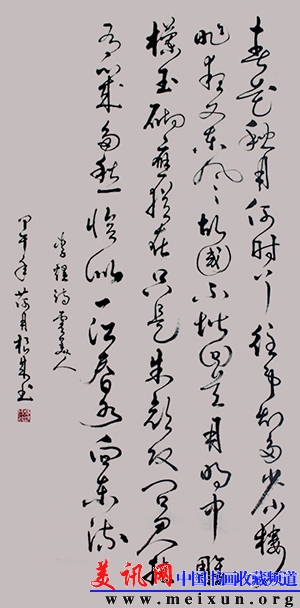 春花秋月何时了往事知多少小楼
昨夜又东风故国不堪回首月明中雕
栏玉砌应犹在只是朱颜改问君能
有几多愁恰似一江春水向东流
李煜诗虞美人
甲午年荷月根
美讯网 中国书画收藏频道
www.meixun.org